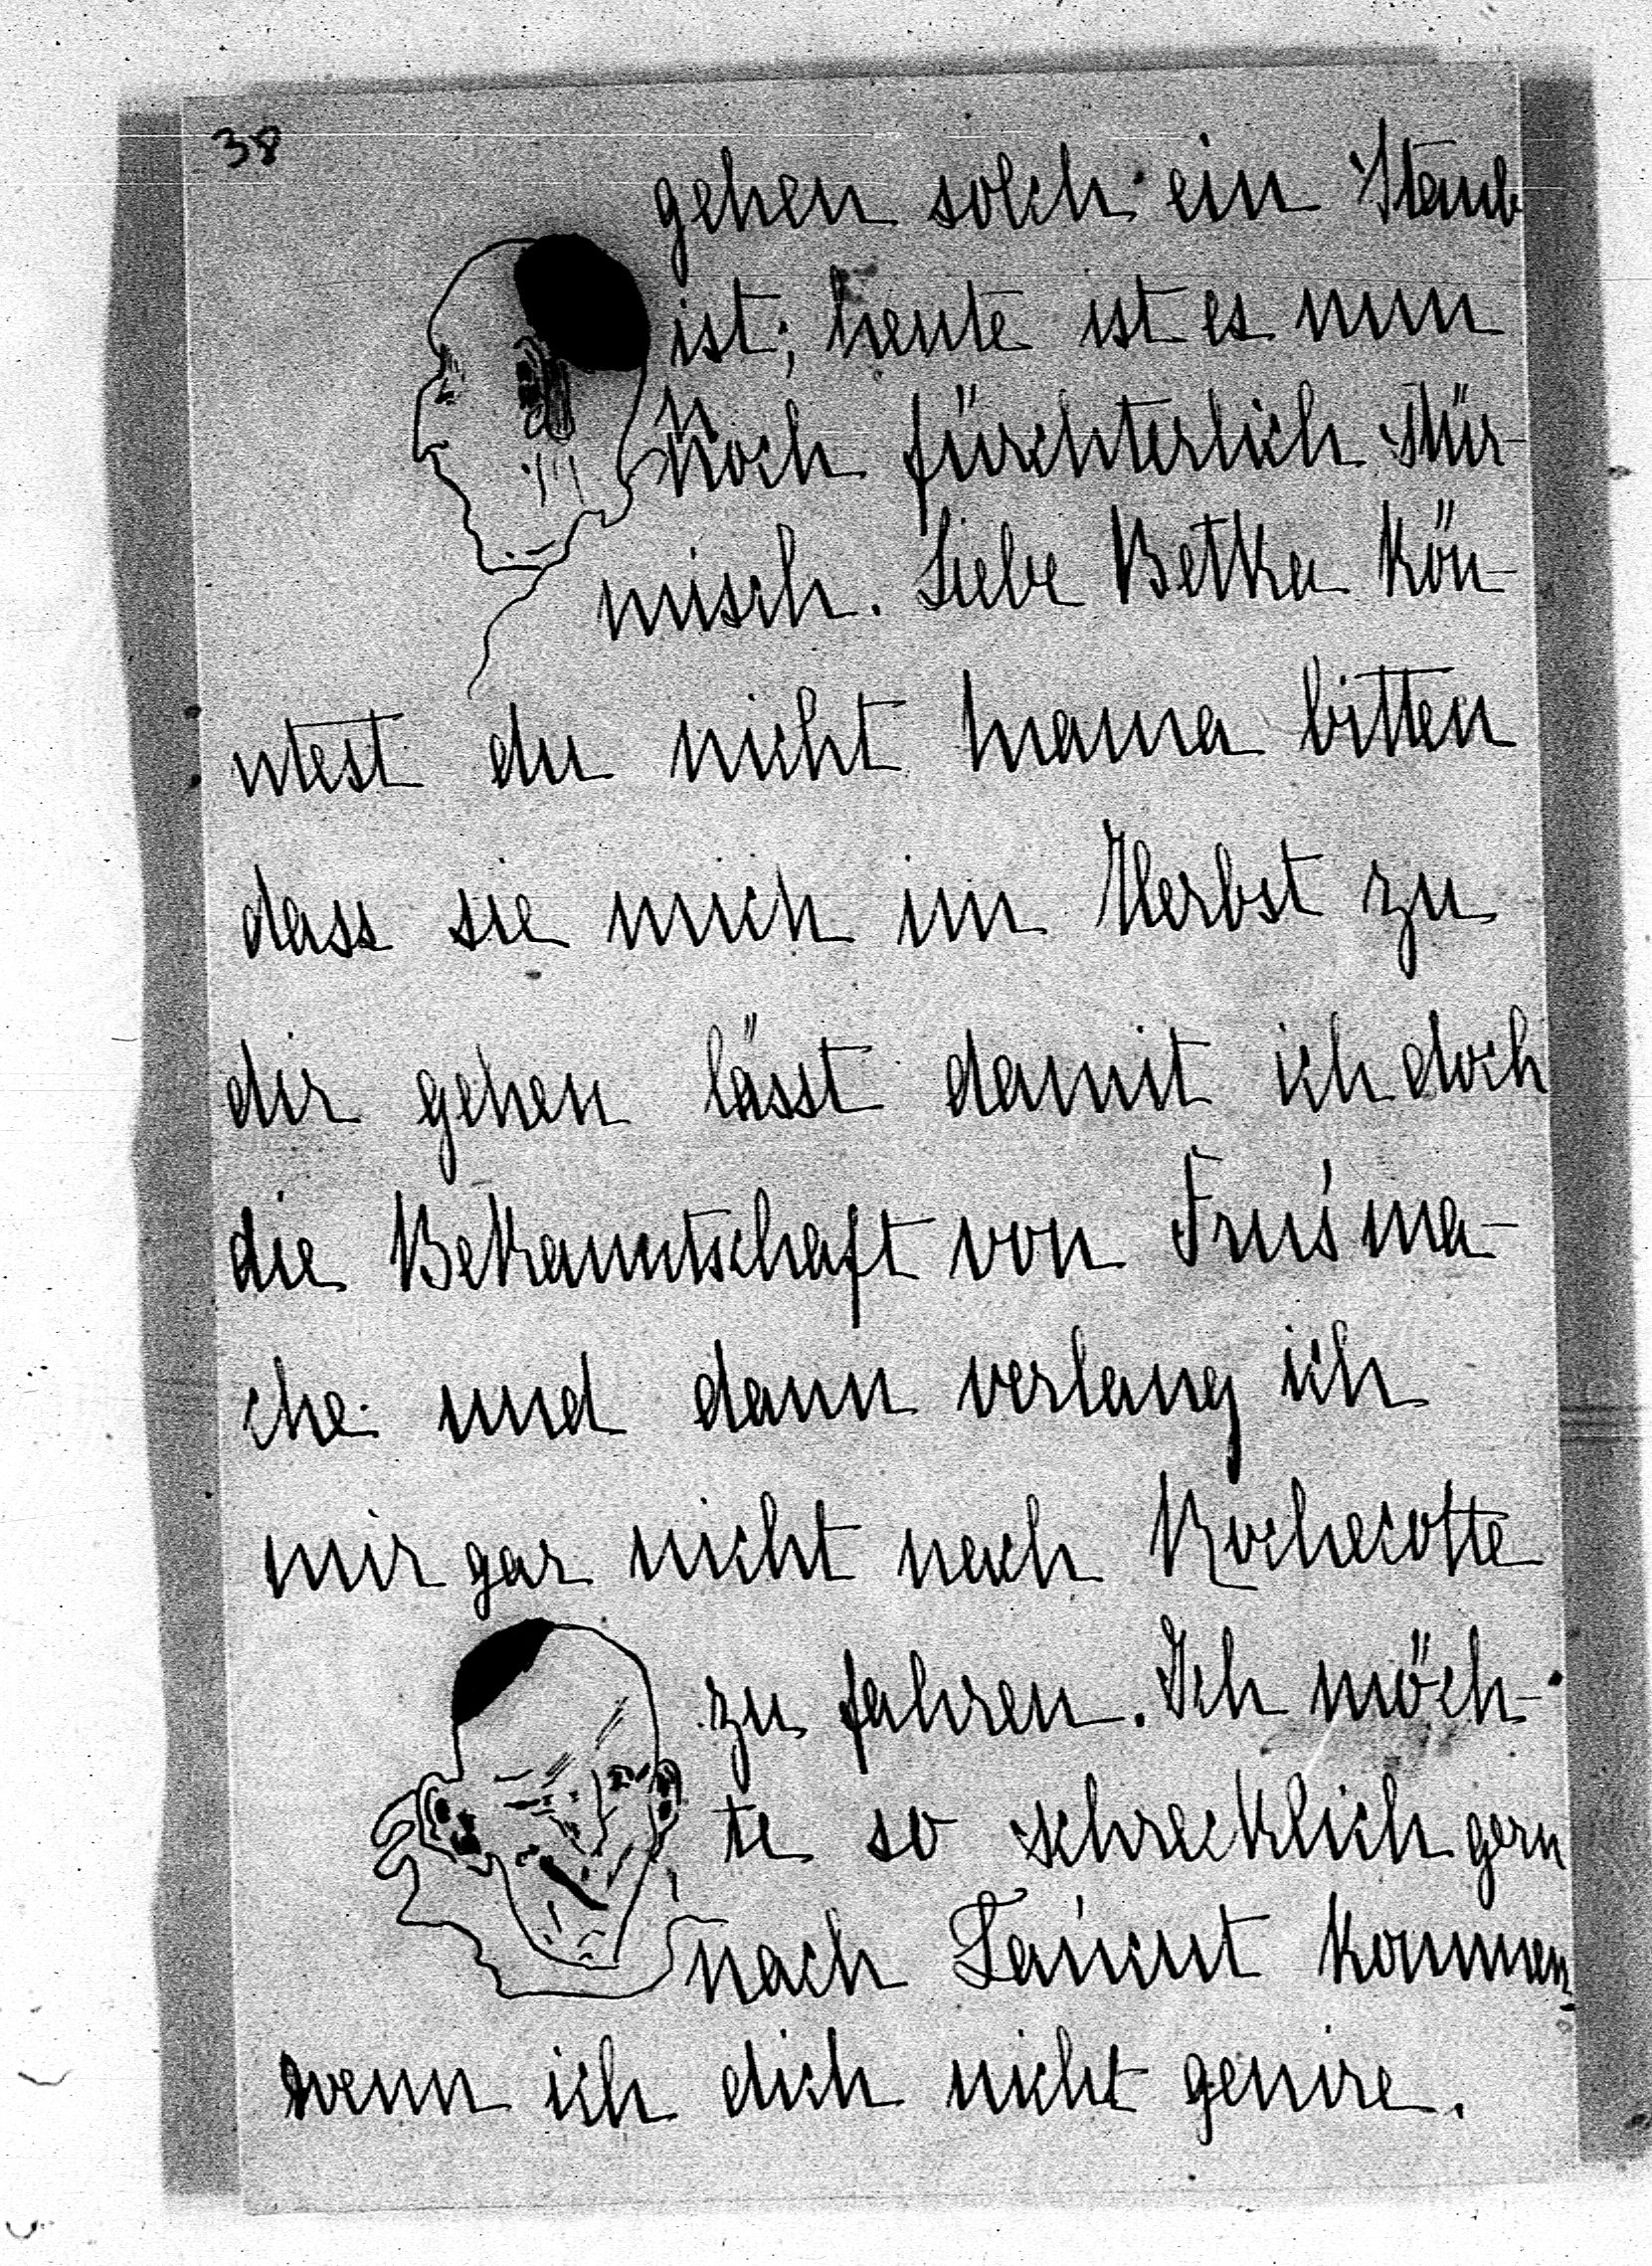 38
gehen solch ein Staub
ist; heute ist es nun
noch fürchterlich stür-
misch. Liebe Betka kön-
ntest du nicht mama bitten
dass sie mich im Herbst zu
dir gehen lässt damit ich doch
die Bekanntschaft von Frus ma-
che und dann verlang ich
mir gar nicht nach Rochecotte
zu fahren. Ich möch-
te so schrecklich gern
nach Łańcut kommen
wenn ich dich nicht genire.